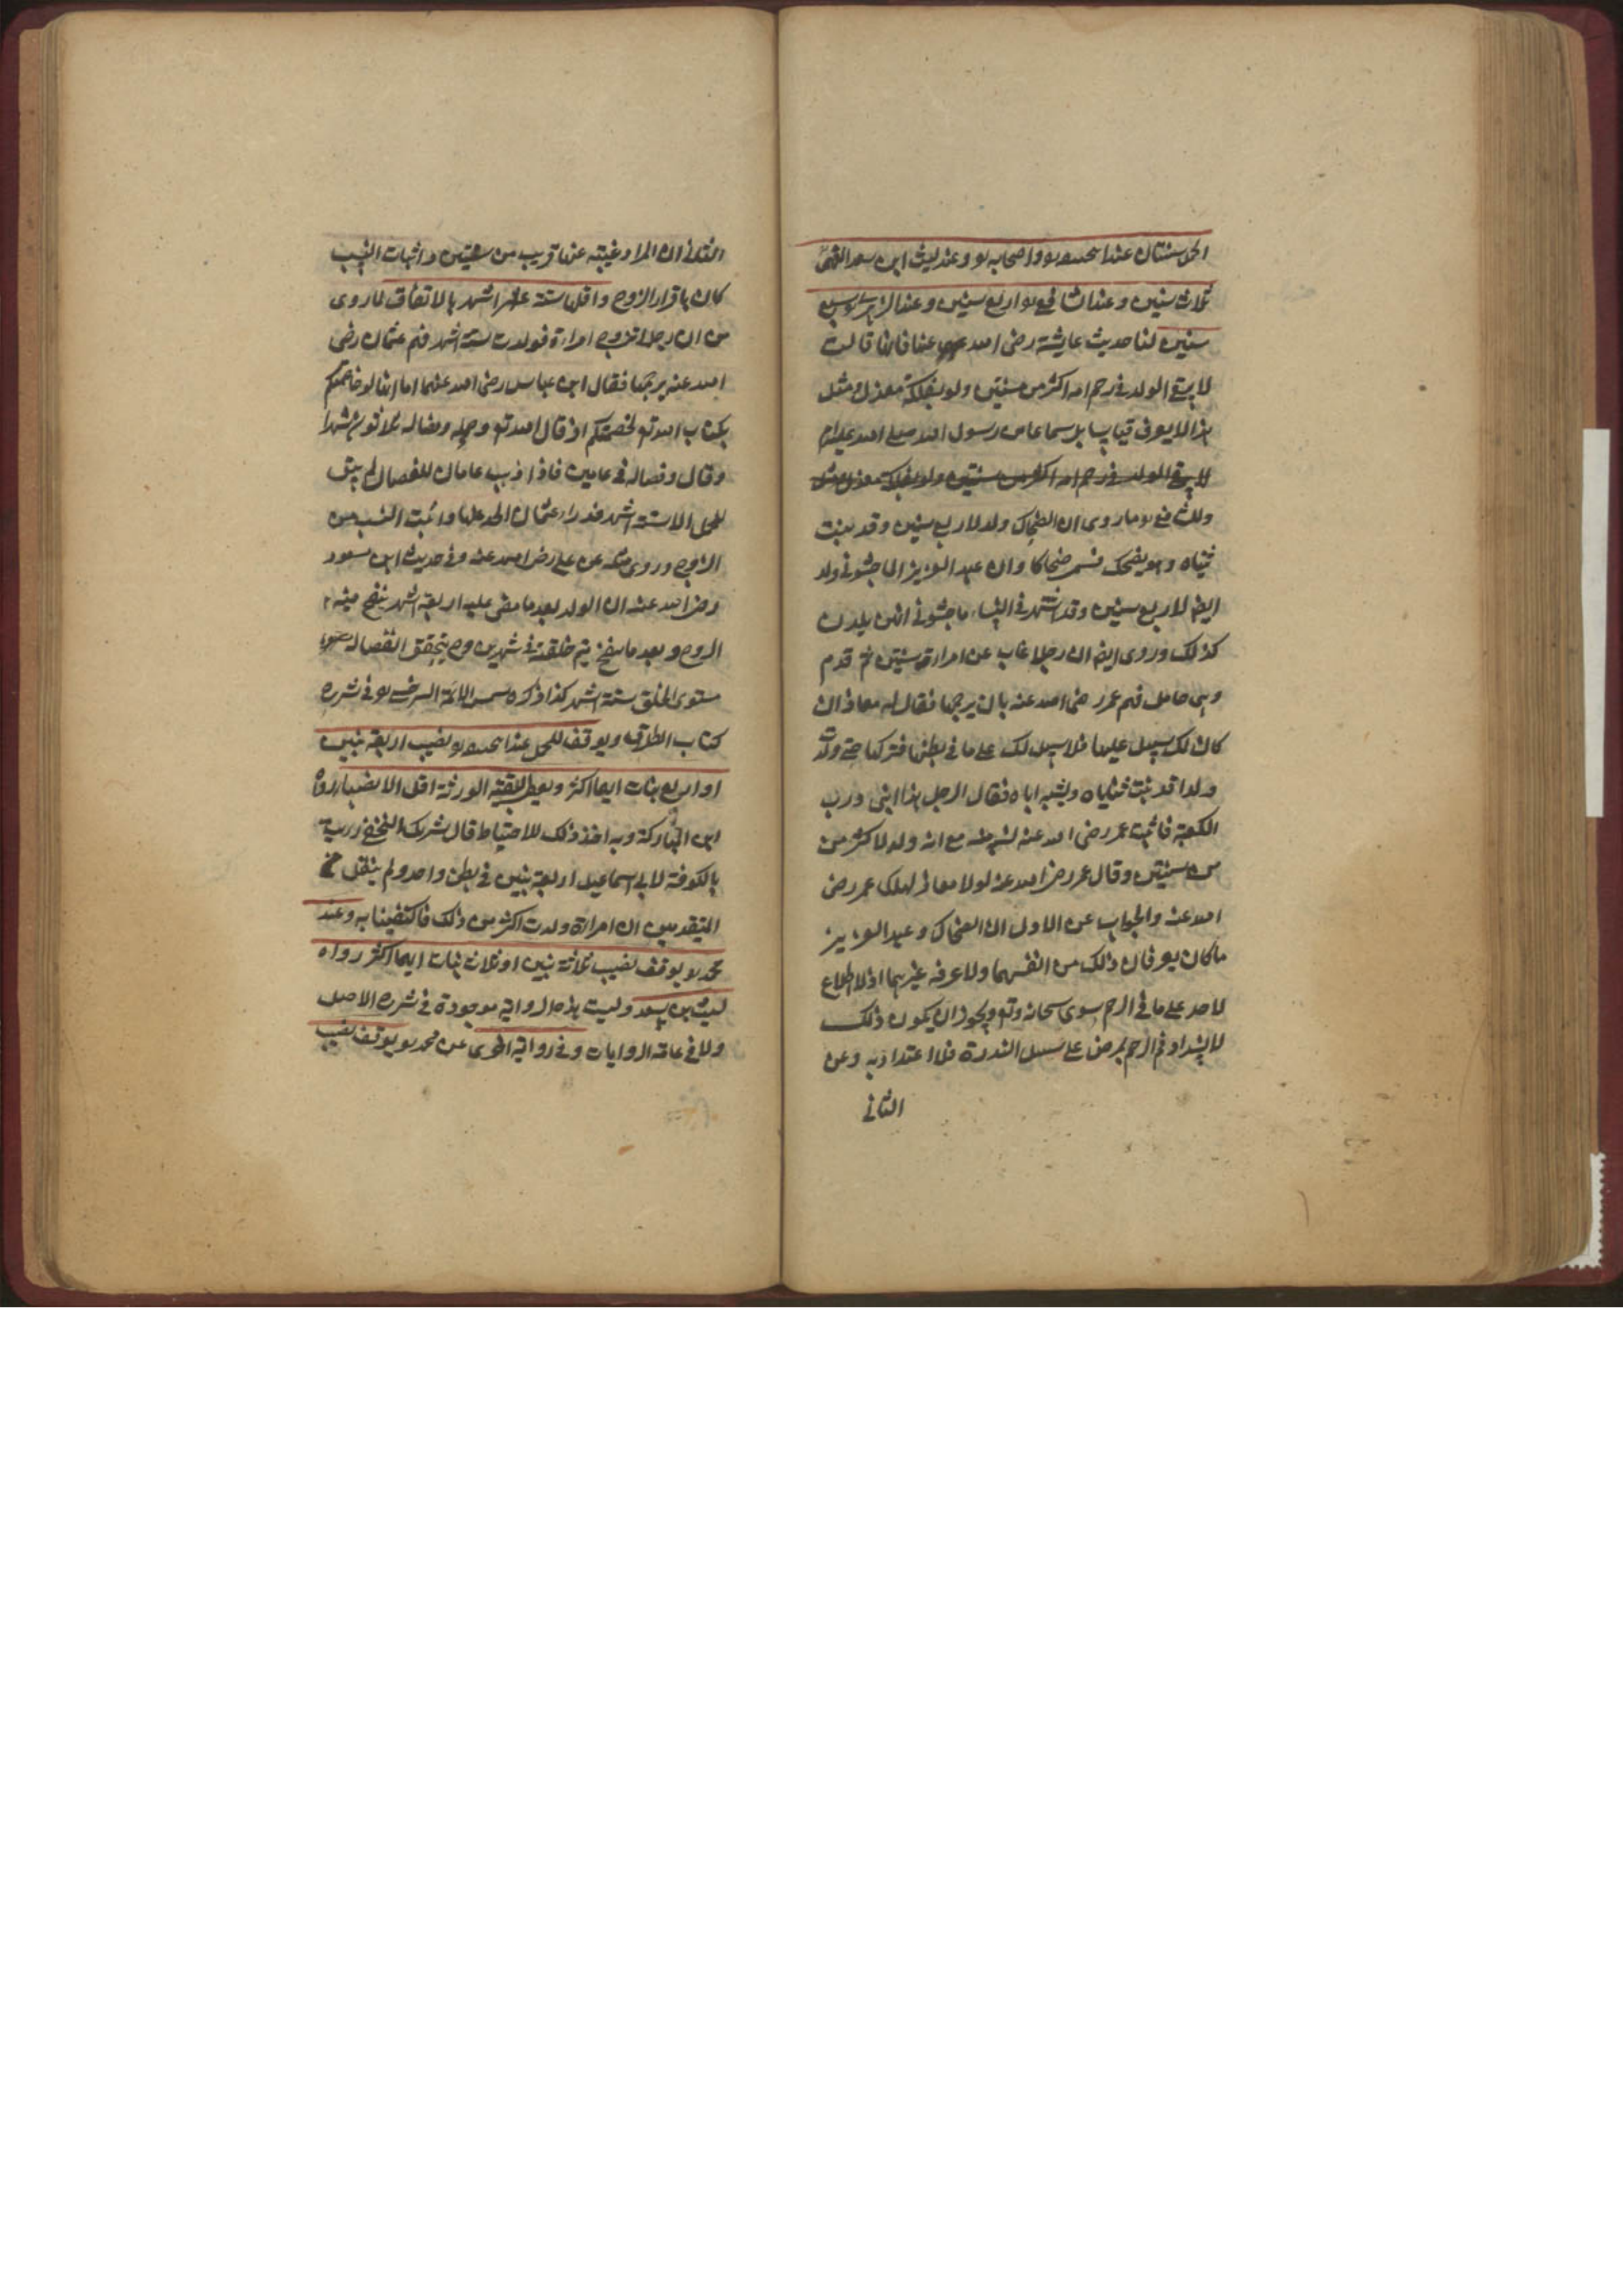 الحمل سنتان عند ابيحنيفه رح واصحابه رح وعند ليث ابن سعد الفهمى
ثلاث سنين وعند الشافعى رح اربع سنين وعند الزهرى رح سبع
سنين لنا حديث عايشة رضى الله عنها فانها قالت
لا يبقى الولد فى رحم امه اكثر من سنتين ولو بفلكة مغزل ومثل
هذا لا يعرف قياسا بل سماعا من رسول الله صلى الله عليه
لا يبقى الولد فى رحم امه اكثر من سنتين ولو بفلكة مغزل
وللشافعى رح ما روى ان الضحاك ولد لاربع سنين وقد نبتت
ثنياه وهو يضحك فسمى ضحاكا وان عبد العزيز الماجشونى ولد
ايضا لاربع سنين وقد اشتهر فى النساء ماجشونى انهن يلدن
كذلك وروى ايضا ان رجلا غاب عن امرأته سنتين ثم قدم
وهى حامل فهم عمر رضى الله عنه بان يرجمها فقال له معاذ ان
كان لك سبيل عليها فلا سبيل لك على ما فى بطنها فتركها حتى ولدت
ولدا قد نبتت ثناياه ويشبه اباه فقال الرجل هذا ابنى ورب
الكعبة فاثبت عمر رضى الله عنه نسبه منه مع انه ولد لاكثر من
من سنتين وقال عمر رضى الله عنه لولا معاذ لهلك عمر رضى
الله عنه والجواب عن الاول ان الضحاك وعبد العزيز
ما كان يعرفان ذلك من انفسهما ولا عرفه غيرهما اذ لا اطلاع
لاحد على ما فى الرحم سوى سبحانه وتع ويجوز ان يكون ذلك
لانسداد فم الرحم لمرض على سبيل الندرة فلا اعتداد به وعن
الثانى
الثانى ان المراد غيبته عنها قريب من سنتين واثبات النسب
كان باقرار الزوج واقلها ستة اشهر بالاتفاق لما روى
من ان رجلا تزوج امراة فولدت لستة اشهر فهم عثمان رضى
الله عنه برجمها فقال ابن عباس رضى الله عنهما اما انها لو خاصمتكم
بكتاب الله تع لخصمتكم اذ قال الله تع وحمله وفصاله ثلاثون شهرا
وقال وفصاله فى عامين فاذا ذهب عامان للفصال لم يبق
للحمل الا ستة اشهر فدرا عثمان الحد عنها واثبت النسب من
الزوج وروى مثله عن على رضى الله عنه وفى حديث ابن مسعود
رضى الله عنه ان الولد بعد ما مضى عليه اربعة اشهر ينفخ فيه
الروح وبعد ما ينفخ يتم خلقته فى شهرين وح يتحقق انفصاله
مستوى الخلق ستة اشهر كذا ذكره شمس الائمة السرخسى رح فى شرح
كتاب الطلاق ويوقف للحمل عند ابيحنيفه رح نصيب اربعة بنين
او اربع بنات ايهما اكثر ويعطى لبقية الورثة اقل الانصباء رواه
ابن المباركة وبه اخذ ذلك للاحتياط قال شريك النخعى رايت
بالكوفة لابى اسماعيل اربعة بنين فى بطن واحد ولم ينقل عن
المتقدمين ان امراة ولدت اكثر من ذلك فاكتفينا به وعند
محمد رح يوقف نصيب ثلاثة بنين او ثلاث بنات ايهما اكثر رواه
ليث بن سعد وليست هذه الرواية موجودة فى شرح الاصل
ولا فى عامة الروايات وفى رواية اخرى عن محمد رح يوقف نصيب